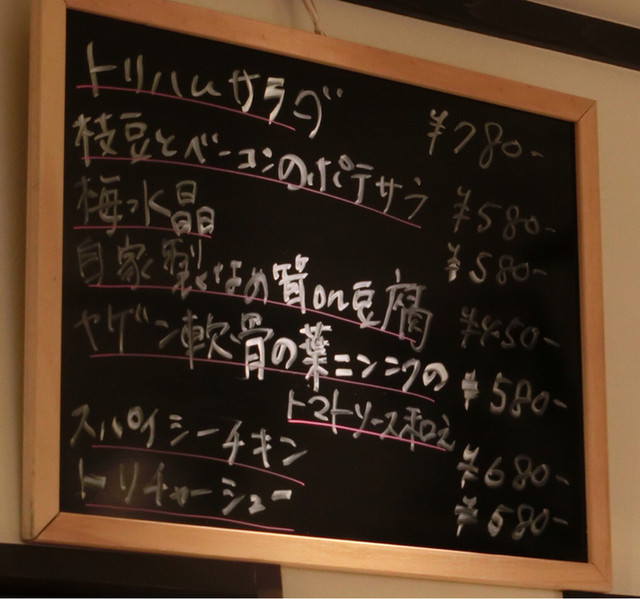 トリハムサラダ ¥780-
枝豆とベーコンのポテサラ ¥580-
梅水晶 ¥580-
自家製なめ茸on豆腐 ¥450-
ヤゲン軟骨の葉ニンニクの ¥580-
トマトソース和え
スパイシーチキン ¥680-
トリチャーシュー ¥580-